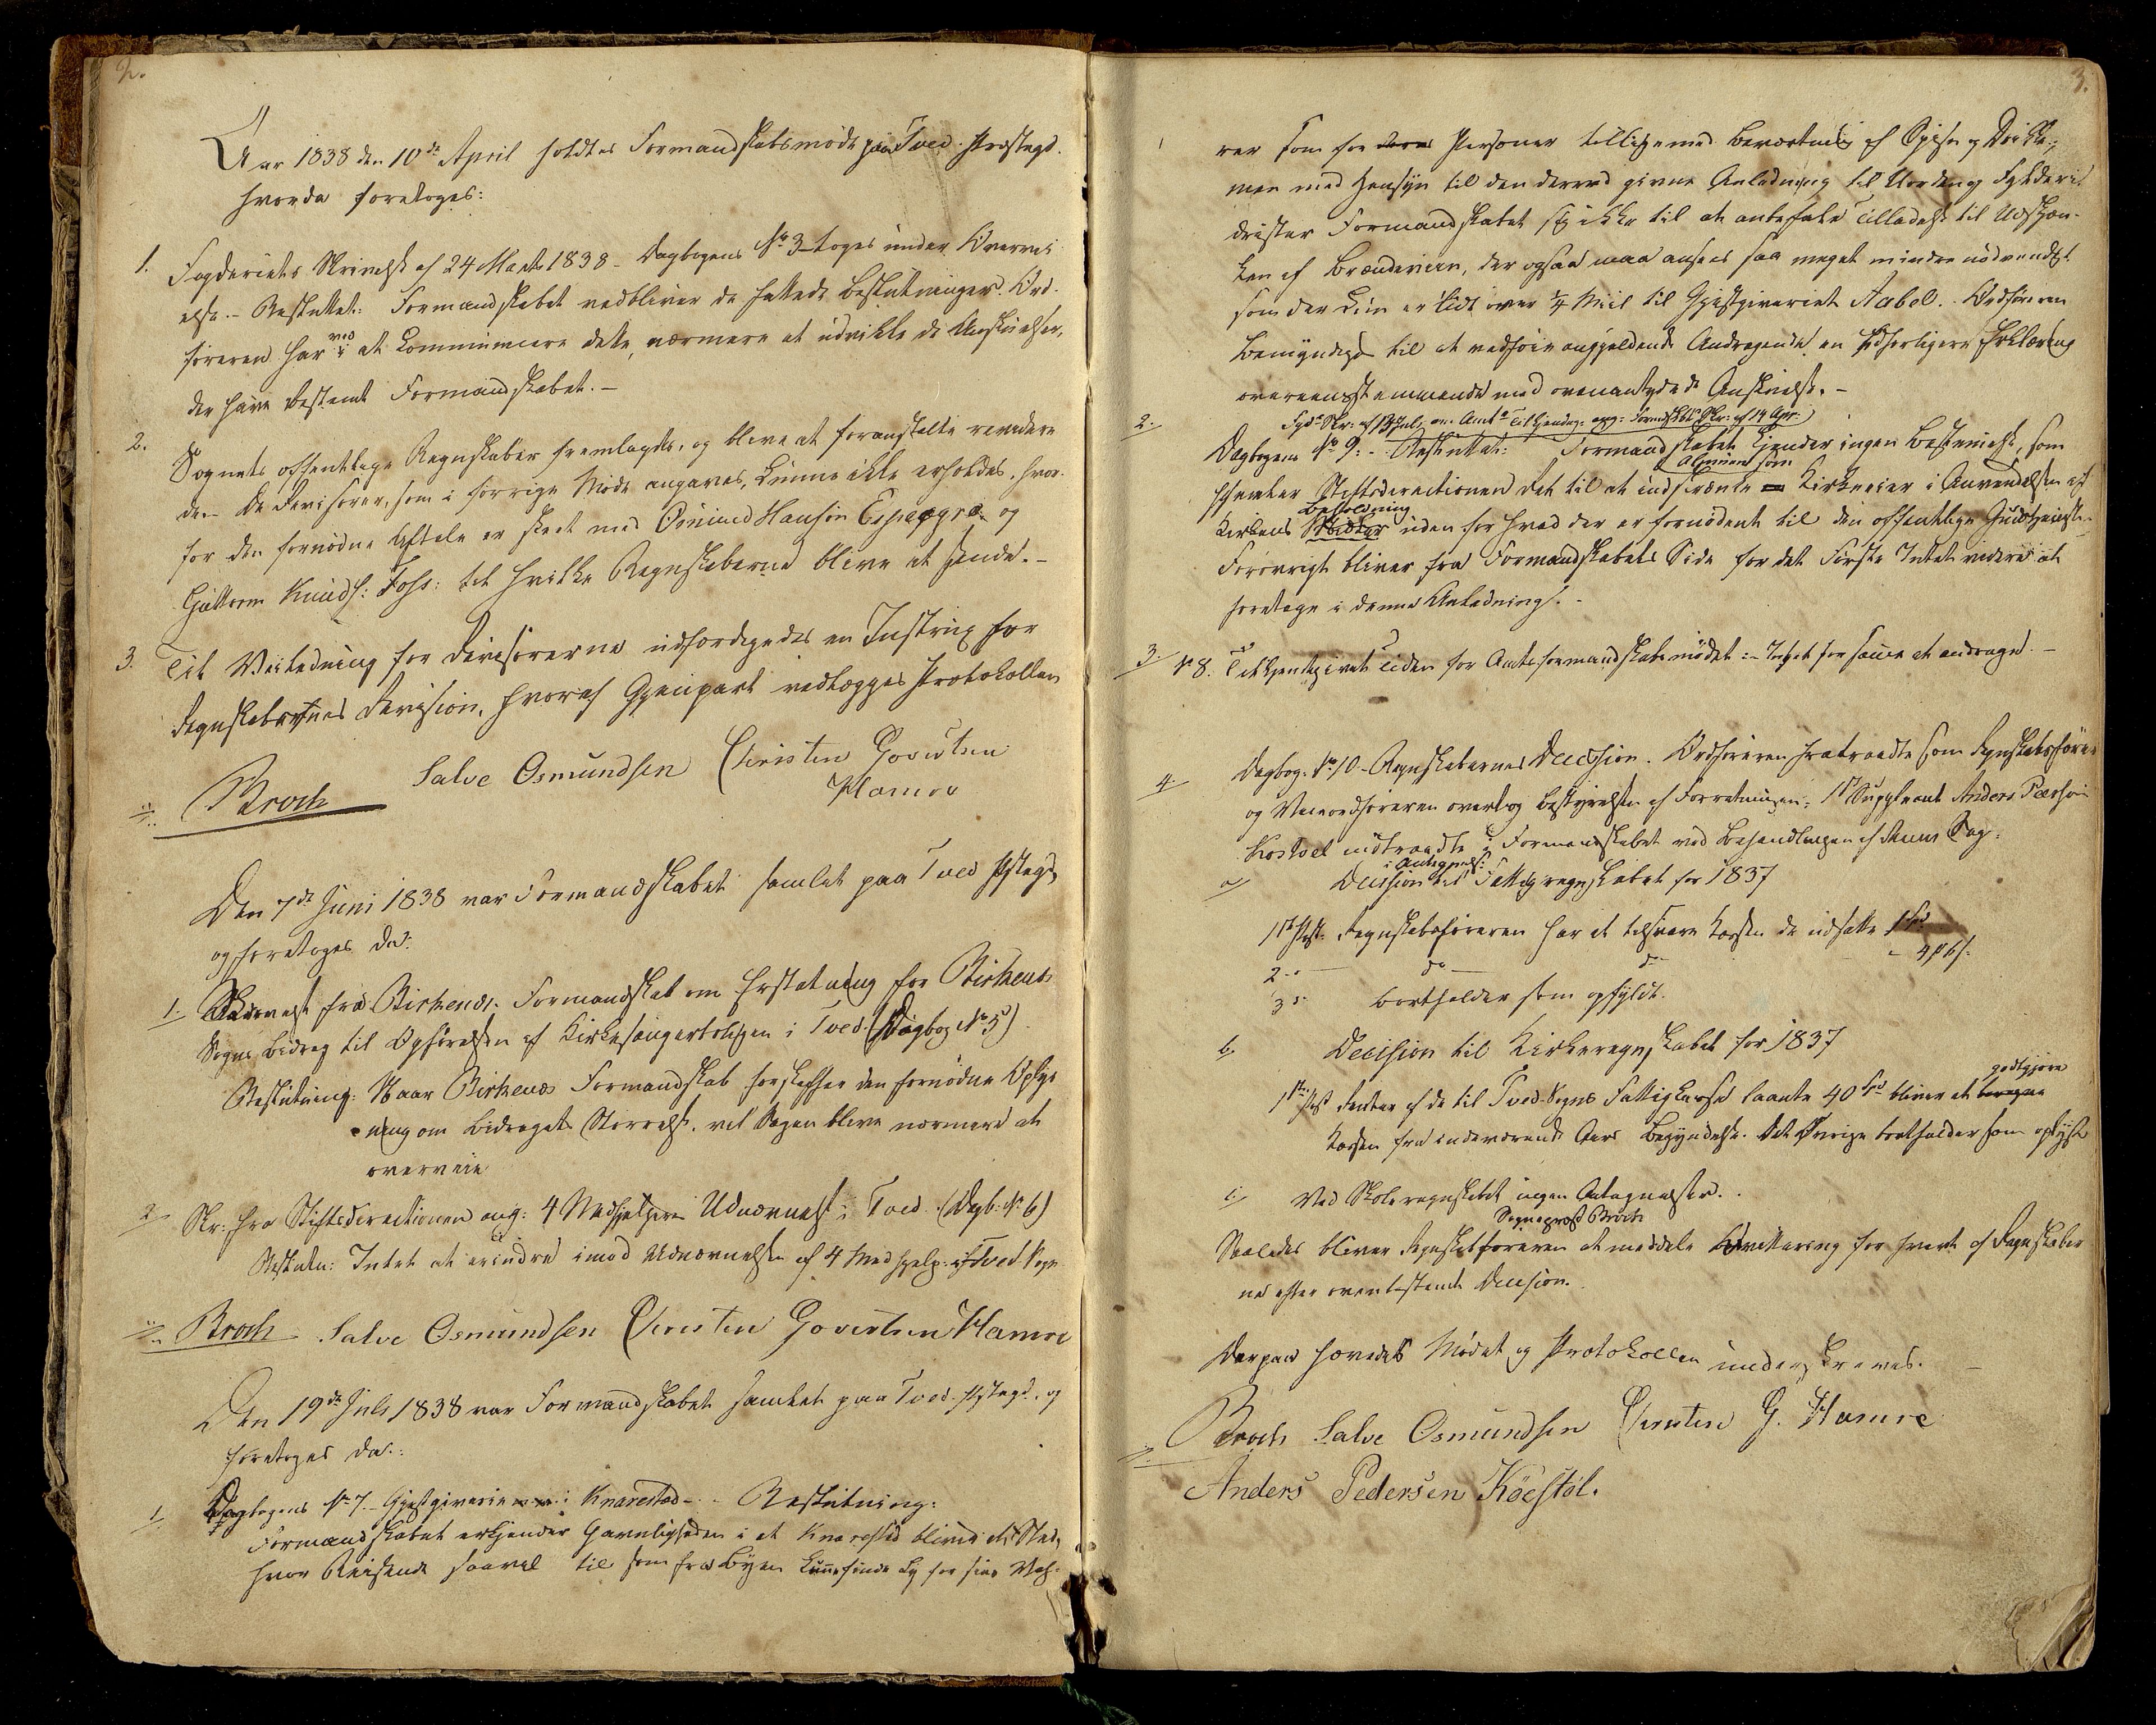 2.
Aar 1838 den 10de April holdtes Formandskabsmøde paa Tved Præstegd.
hvorda foretoges:
1. Fogderiets Skrivelse af 24 Marts 1838 - Dagbogens No 3 toges under Overvei-
else. - Besluttet: Formandskabet vedbliver de fattede Beslutninger. Ord-
føreren har ved at Communicere dette, nærmere at udvikle de Anskuelser,
der have bestemt Formandskabet. -
2. Sognets offentlige Regnskaber fremlagdes, og blive at foranstalte revidere
de. - De Revisorer, som i forrige Møde angaves, kunne ikke erholdes, hvor-
for den fornødne Aftale er skeet med Osmund Hansen Espegra og
Guttorm Knuds: Foss: til hvilke Regnskaberne blive at sende. -
3. Til Veiledning for Revisorerne udfærdigedes en Instrux for
Regnskabernes Revision, hvoraf Gjenpart vedlægges Protokollen
Broch Salve Osmundsen Christen Govertsen
Hamre
Den 7de Juni 1838 var Formandskabet samlet paa Tved Pstegd,
og foretoges da:
1. Skrivelse fra Birkenæs Formandskab om Erstatning for Birkenæs
Sogns Bidrag til Opførelsen af Kirkesangerboligen i Tved (Dagbog No 5)
Beslutning: Naar Birkenæs Formandskab forskaffer den fornødne Oplys-
ning om Bidragets Størrelse, vil Sagen blive nærmere at
overveie
2 Skr. fra Stiftsdirectionen ang: 4 Medhjelperes Udnævnelse i Tved. (Dagb: No 6)
Beslutn: Intet at erindre imod Udnævnelsen af 4 Medhjelp: i Tved Sogn
Broch Salve Osmundsen Christen Govertsen Hamre
Den 19de Juli 1838 var Formandskabet samlet paa Tved Pstegd. og
foretoges da:
1 Dagbogens No 7 - Gjestgiverie i Knarestad - Beslutning:
Formandskabet erkjender Gavnligheden i at Knarestad bliver et Sted,
hvor Reisende saavel til som fra Byen kunne finde Ly for sine Vah-
3.
rer som for Personer tilligemed Beværtning af Spise og Drikke;
men med Hensyn til den derved givne Anledning til Uorden og Fylderi
drister Formandskabet sig ikke til at anbefale Tilladelse til Udskjæn-
ken af Brændeviin, der ogsaa maa ansees saa meget mindre nødvendigt
som der kun er lidt over 1/4 Miil til Gjestgiveriet Aabel. Ordføreren
bemyndiges til at vedføie angjældende Andragende en Erklæring
overeensstemmende med ovenantydede Anskuelse. -
2. Fgd. Skr: af Juli om Amts Tilkjendeg: ang: Formdskbts Skr: af 14 Apr:
Dagbogens No 9: - Besluttet: Formandskabet kjender ingen Bestemmelse, som
hjemler Stiftsdirectionen Ret til at indskrænke Almuen som Kirkeeier i Anvendelsen af
Kirkens Beholdning uden for hvad der er fornødent til den offentlige Gudstjeneste
Forøvrigt bliver fra Formandskabets Side for det Første Intet videre at
foretage i denne Anledning. -
3. No 8. Tilkjendegivet Tiden for Amtsformandskabsmødet: - Intet for samme at andrage. -
4 Dagbog: No 10 - Regnskabernes Decision. Ordføreren fratraadte som Regnskabsfører
og Viceordføreren overtog Bestyrelsen af Forretningen; 1ste Suppleant Anders Pedersen
Køstøl indtraadte i Formandskabet ved Behandlingen af denne Sag.
a Decision i Antegnels: til Fattigregnskabet for 1837
1ste Post. Regnskabsføreren har at tilsvare Kassen de udsatte 1 Spd
2 - do - do - 4 ß.
3 - bortfalder som opfyldt.
b Decision til Kirkeregnskabet for 1837
1ste Post Renter af de til Tved Sogns Fattigkasse laante 40 Spd bliver at godtgjøre
Kassen fra indeværende Aars Begyndelse. Det Øvrige bortfalder som oplyst
c Ved Skoleregnskabet ingen Antegnelser.
Saaledes bliver Regnskabsføreren Sogneprest Broch at meddele Qvittering for hvert af Regnskaber-
ne efter ovenbestemte Decision.
Derpaa hævedes Mødet og Protokollen underskreves. -
Broch Salve Osmundsen Christen G. Hamre
Anders Pedersen Köestöl.